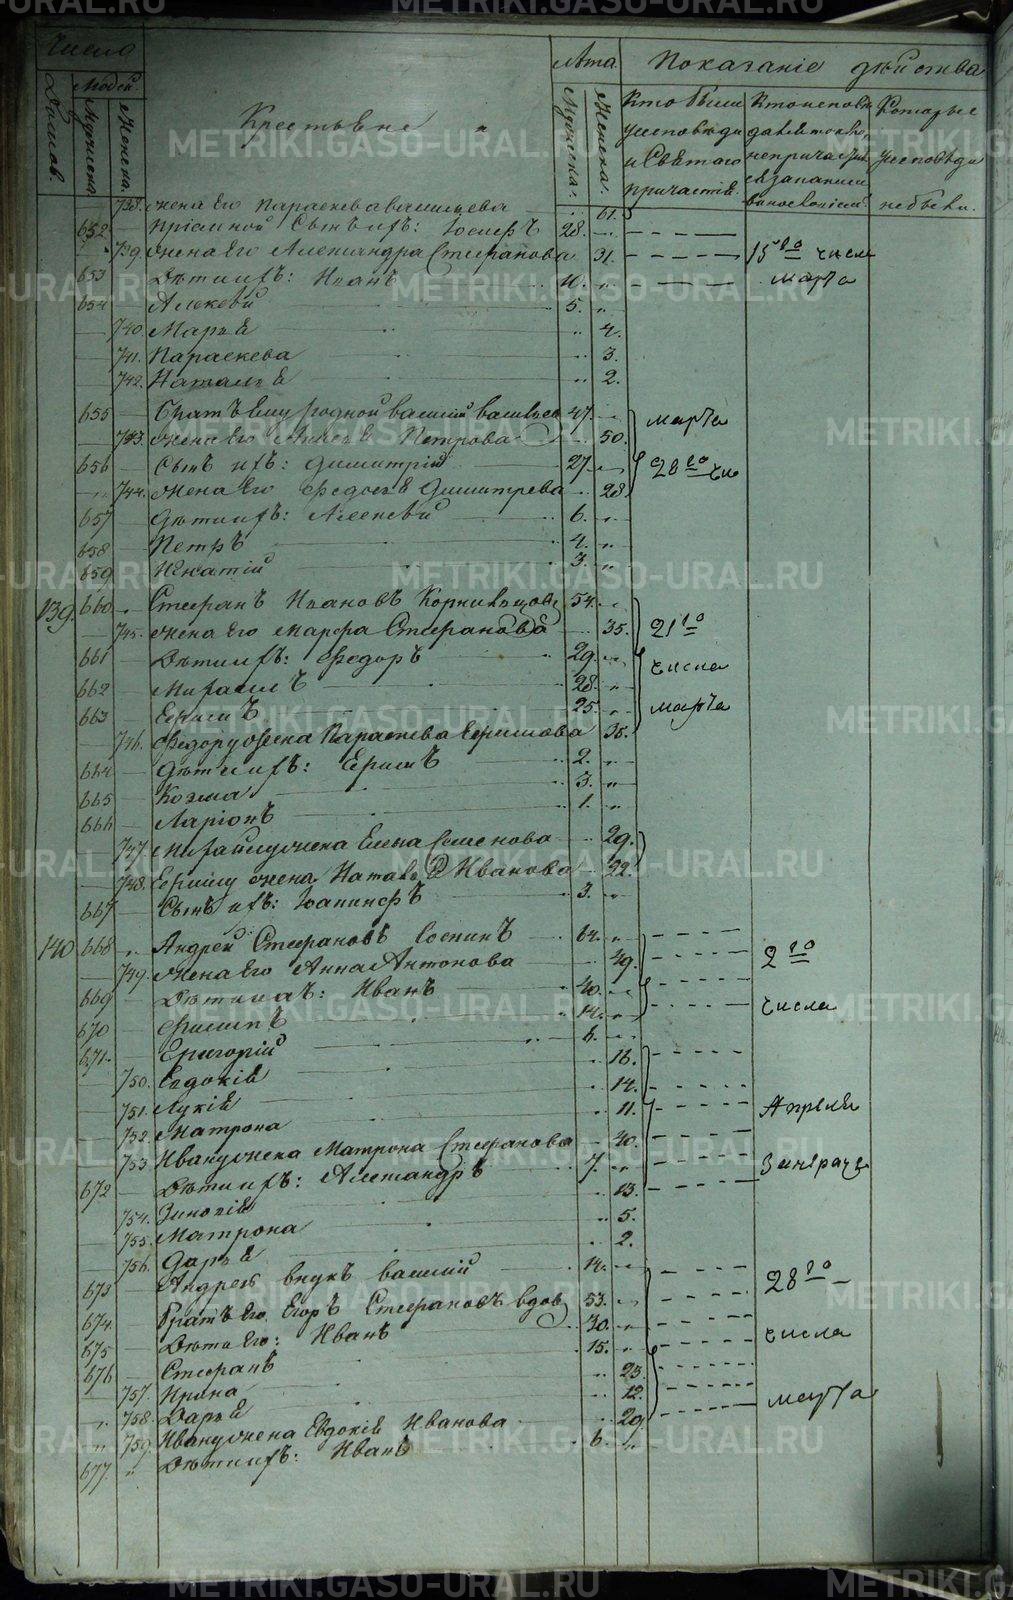 Числа
Лѣта
Показаніе дѣйства
Домовъ.
Людей.
Мужеска.
Женска.
Крестьяне
Мужеска.
Женска.
Кто были у исповѣди и Святаго причастія.
Кто исповѣдались токмо, а не причастились
Которые у исповѣди не были.
738. жена его Параскева Васильева 61.
652 пріемной Сынъ ихъ: Іосифъ 28.
739. жена его Александра Стефанова 31. 15го числа
653 Дѣти ихъ: Иванъ 10. марта
654 Алексѣй 5.
740. Марья 4.
741. Параскева 3.
742. Наталья 2.
655 Братъ ему родной Василий Васильев 47. марта
743. жена его Петрова 50.
656 Сынъ ихъ: Димитрій 27. 28го чи
744. жена его Федосья Димитрева 28
657 Дѣти ихъ: Алексѣй 6.
658 Петръ 4.
659 Игнатій 3.
139. 660 Стефанъ Ивановъ 54.
745. жена его Марфа Стефанова 35. 21го
661 Дѣти ихъ: Федоръ 29.
числа
662 Михаилъ 28.
663 Ефимъ 25. марта
746. Федору жена Параскева Ефимова 35.
664 Дѣти ихъ: Ефимъ 2.
665 Козма 3.
666 Ларіонъ 1.
747. Михайлу жена Елена Семенова 29.
748. Ефиму жена Наталья Иванова 22.
667 Сынъ ихъ: 3.
140 668 Андрей Стефановъ 64.
749. жена его Анна Антонова 49. 2го
669 Дѣти ихъ: Иванъ 40.
670 Филипъ 14. числа
671. Григорій 6.
750. Евдокія 16.
751. Лукія 14. Апрѣля
752. Матрона 11.
753 Ивану жена Матрона Стефанова 40.
672 Дѣти ихъ: Александръ 7.
754. Зиновія 13.
755. Матрона 5.
756. Дарья 2.
673 Андрея внукъ Василий 14. 28го
674. Братъ его Егоръ Стефановъ вдов 53.
675 Дѣти его: Иванъ 30. числа
676 Стефанъ 15.
757. Ирина 23.
758. Дарья 12. марта
759. Ивану жена Евдокія Иванова 29
677. Дѣти ихъ: Иванъ 6.
METRIKI.GASO-URAL.RU